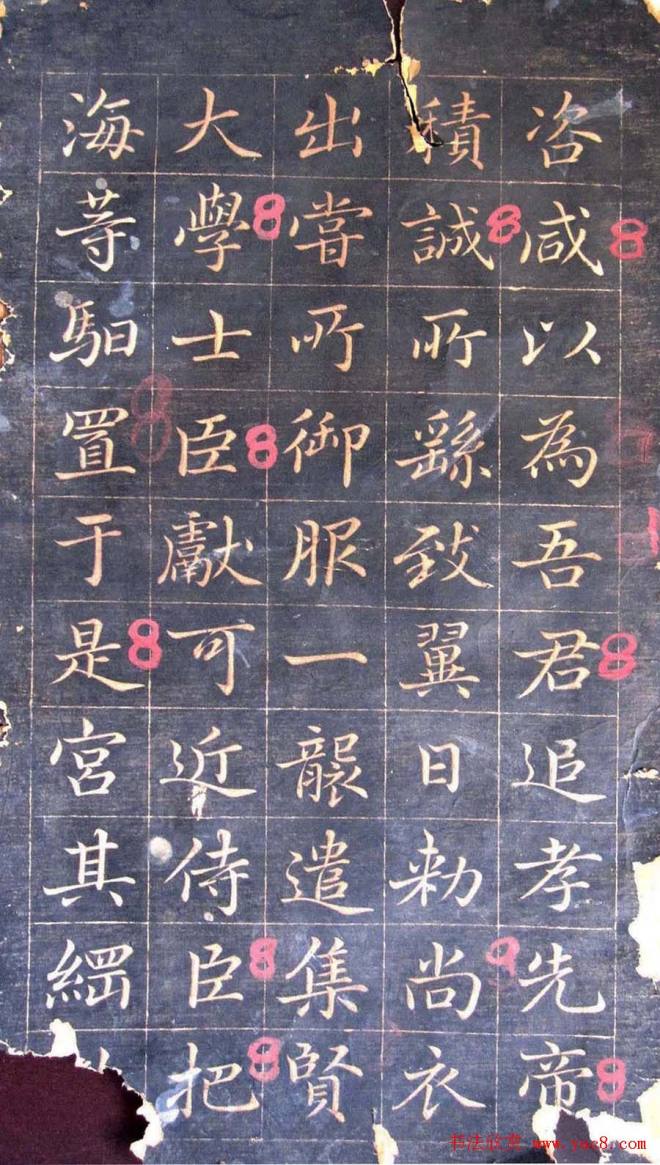 咨咸以為吾君追孝先帝
積誠所繇致翼日勑尚衣
出嘗所御服一襲遣集賢
大學士臣獻可近侍臣把
海等馹置于是宮其繝
书法欣赏 www.yac8.com